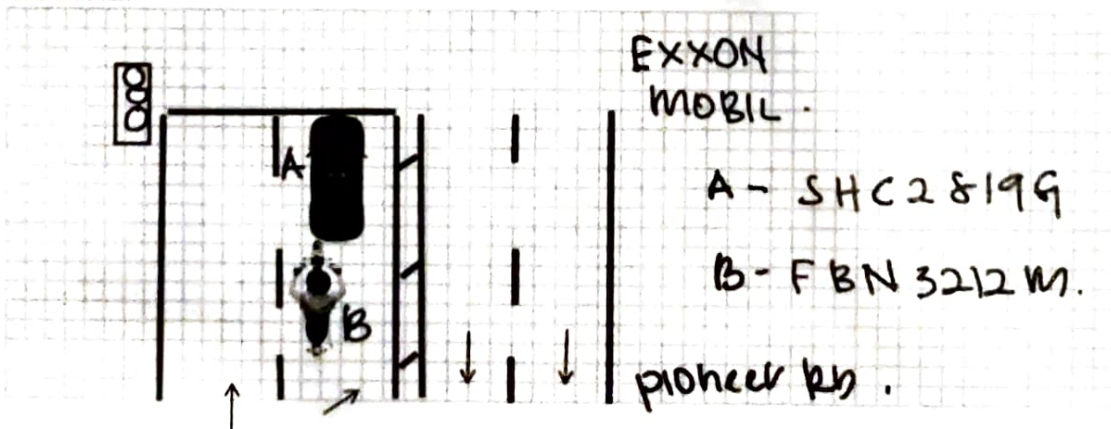 EXXON
MOBIL.
A
A - SHC2819G
B - FBN3212M.
B
pioneer RD.